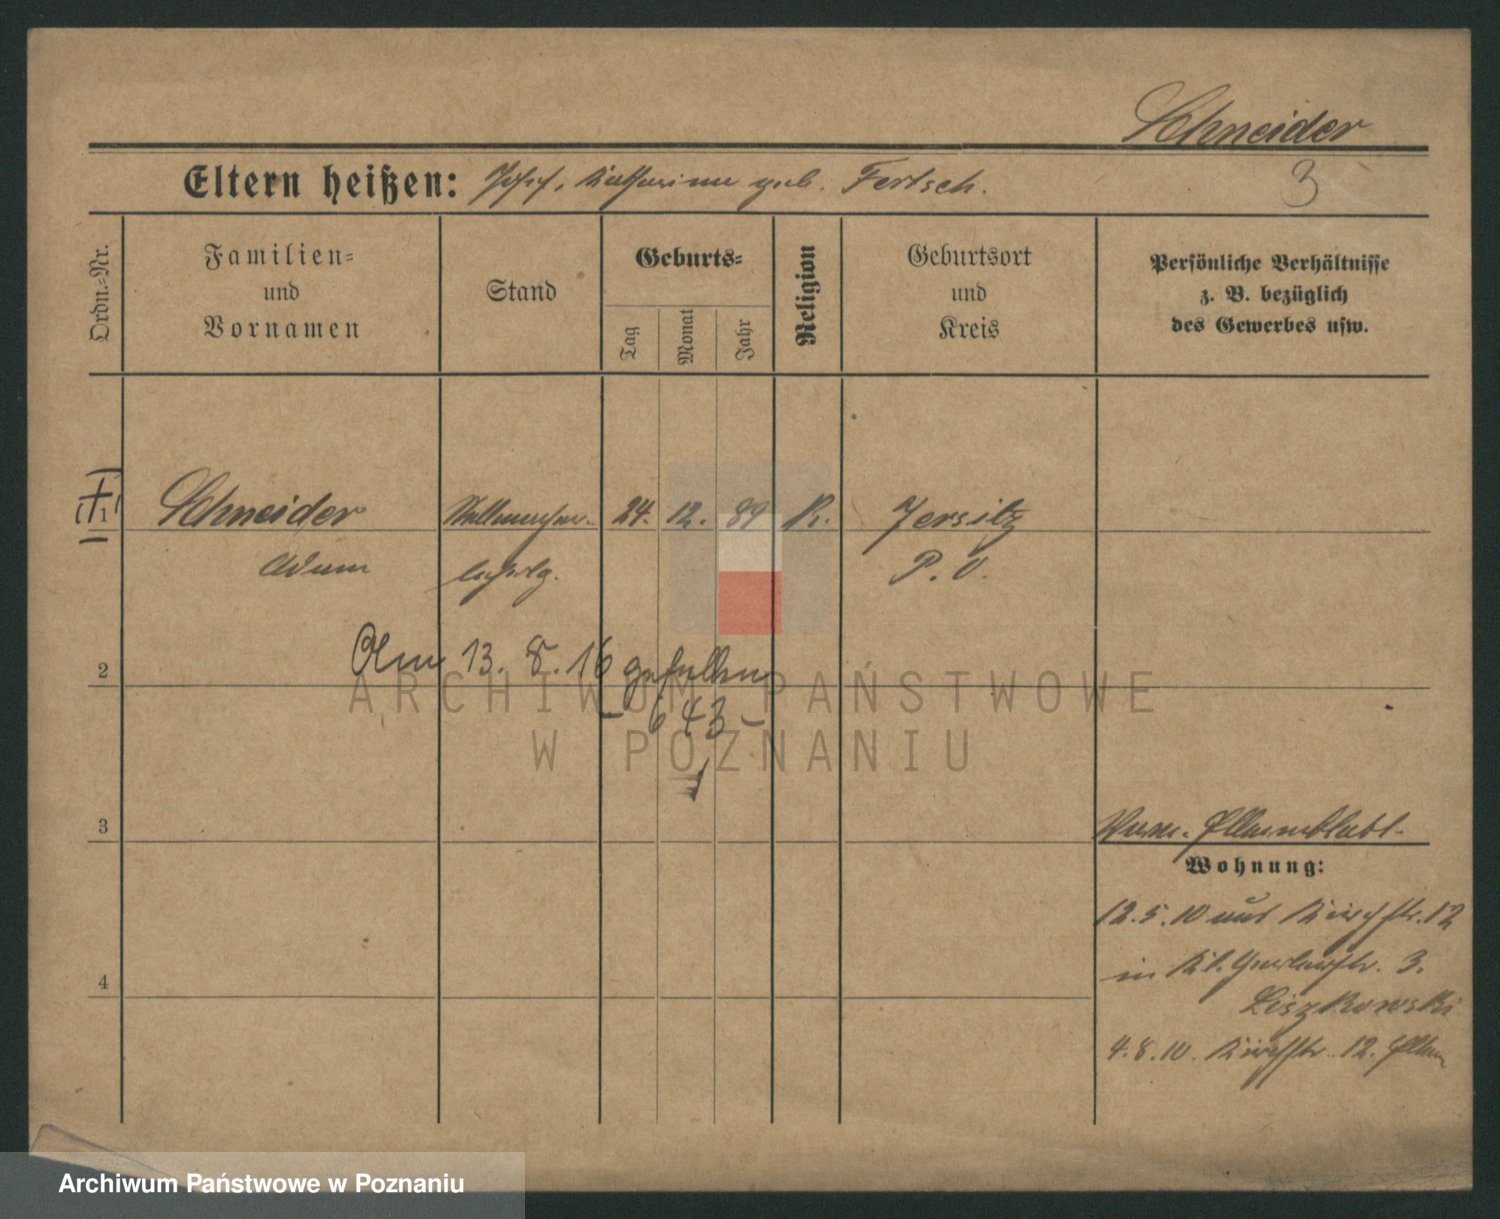 Schneider
3
Eltern heißen: Josef, Katharina geb. Fertsch.
Ordn.-Nr.
Familien=
und
Vornamen
Stand
Geburts=
Tag
Monat
Jahr
Religion
Geburtsort
und
Kreis
Persönliche Verhältnisse
z. B. bezüglich
des Gewerbes usw.
1
Schneider
24. 12. 89
K.
Jersitz
Adam
P. O.
Am 13. 8. 16 gefallen
2
- 643 -
ARCHIWUM PAŃSTWOWE
W POZNANIU
3
Wohnung:
12.5.10 aus Kirchstr. 12
in Kl. Gerberstr. 3.
Liszkowski
4
4.8.10. Kirchstr. 12. Eltern
Archiwum Państwowe w Poznaniu